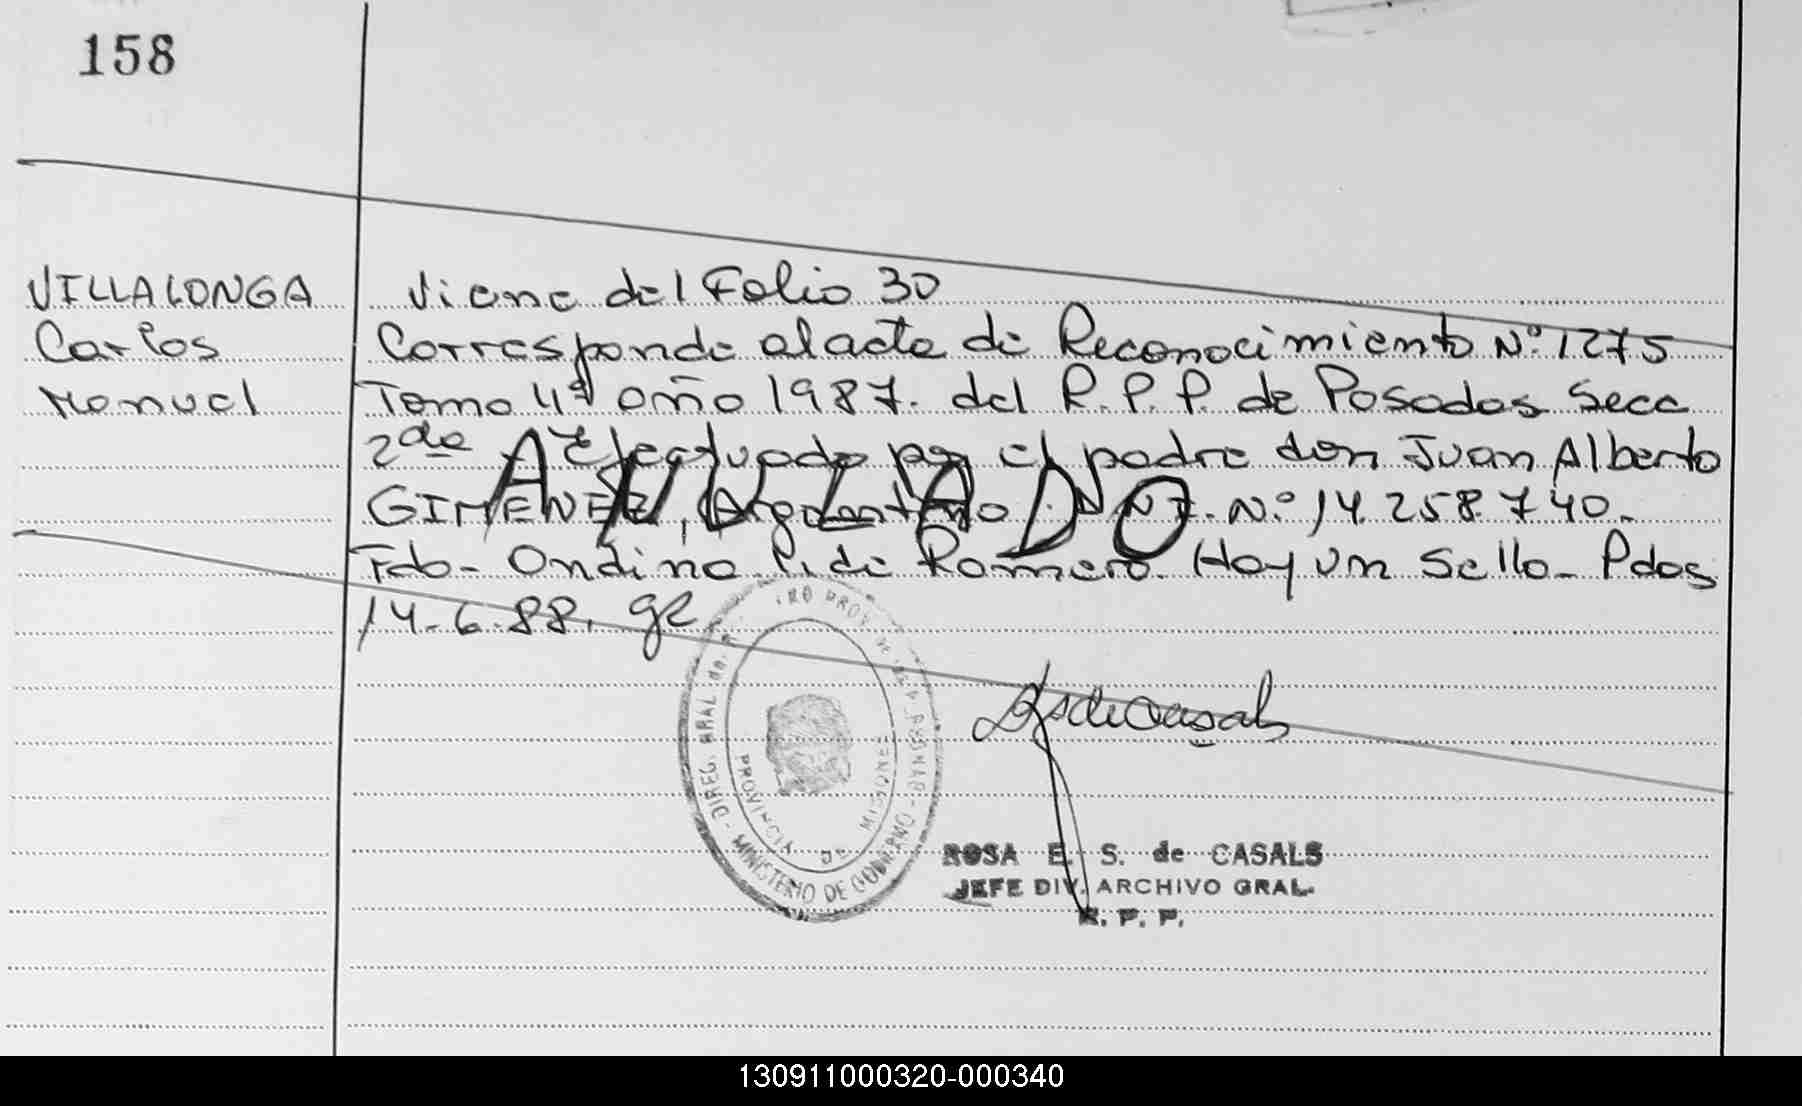 158
VILLALONGA
Carlos
Manuel
Viene del Folio 30
Corresponde al acta de Reconocimiento Nº 1275
Tomo 4º año 1987. del R.P.P. de Posadas Secc
2da Efectuado por el padre don Juan Alberto
GIMENEZ, Argentino D.N.I. Nº 14.258.740.
ANULADO
Fdo- Ondina P. de Romero. Hay un Sello- Pdas
14.6.88.
PROVINCIA DE MISIONES
MINISTERIO DE GOBIERNO - DIREC. GRAL
ROSA E. S. de CASALS
JEFE DIV. ARCHIVO GRAL.
R. P. P.
130911000320-000340